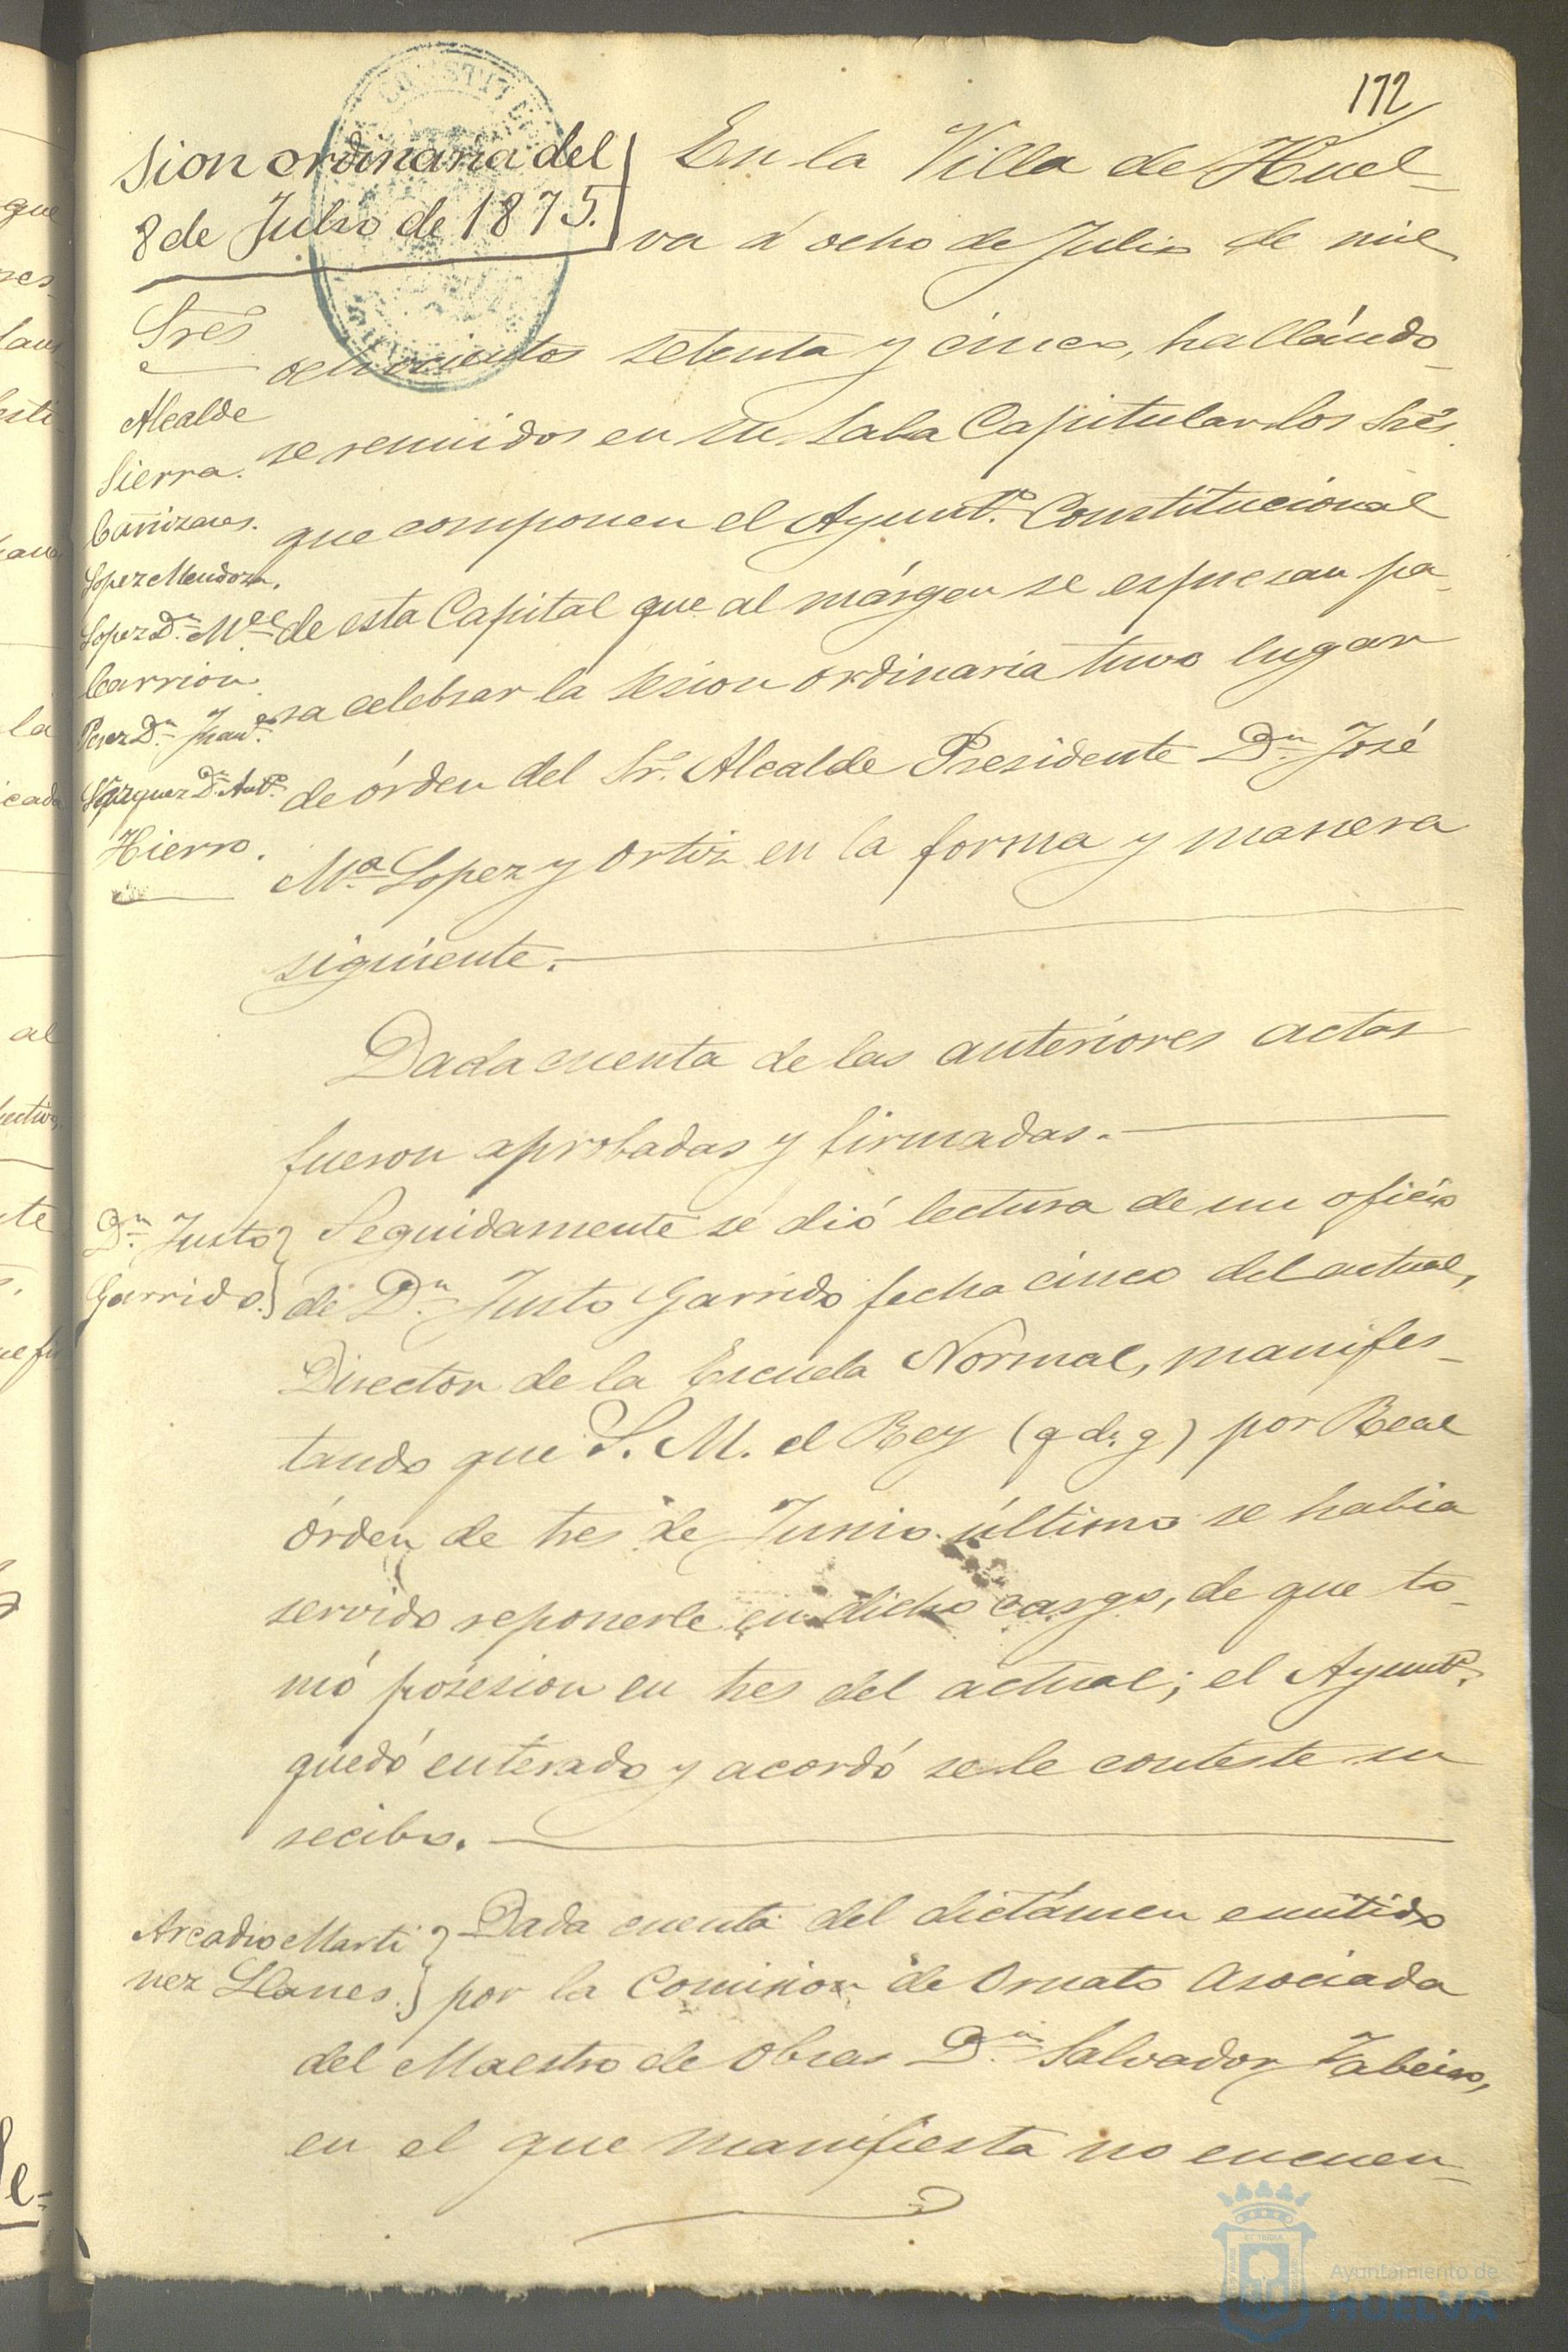 172
sion ordinaria del
8 de Julio de 1875.
Sres
Alcalde
Sierra.
Cañizares.
Lopez Mendoza.
Lopez Dn. Mel
Carrion.
Perez Dn. Juan
Vazquez Dn. Anto.
Hierro.
En la Villa de Huel-
va á ocho de Julio de mil
ochocientos setenta y cinco, hallándo-
se reunidos en su Sala Capitular los Sres.
que componen el Ayunto. Constitucional
de esta Capital que al márgen se espresan pa-
ra celebrar la sesion ordinaria tuvo lugar
de órden del Sr. Alcalde Presidente Dn. José
Ma. Lopez y Ortiz en la forma y manera
siguiente.
Dada cuenta de las anteriores actas
fueron aprobadas y firmadas.
Dn. Justo
Garrido.
Seguidamente se dió lectura de un oficio
de Dn. Justo Garrido fecha cinco del actual,
Director de la Escuela Normal, manifes-
tando que S. M. el Rey (q d. g) por Real
órden de tres de Junio último se habia
servido reponerle en dicho cargo, de que to-
mó posesion en tres del actual; el Ayunto.
quedó enterado y acordó se le conteste su
recibo.
Arcadio Marti
nez Llanes.
Dada cuenta del dictámen emitido
por la Comision de Ornato Asociada
del Maestro de Obras Dn. Salvador Tabeiro,
en el que manifiesta no encuen-
Ayuntamiento de
HUELVA